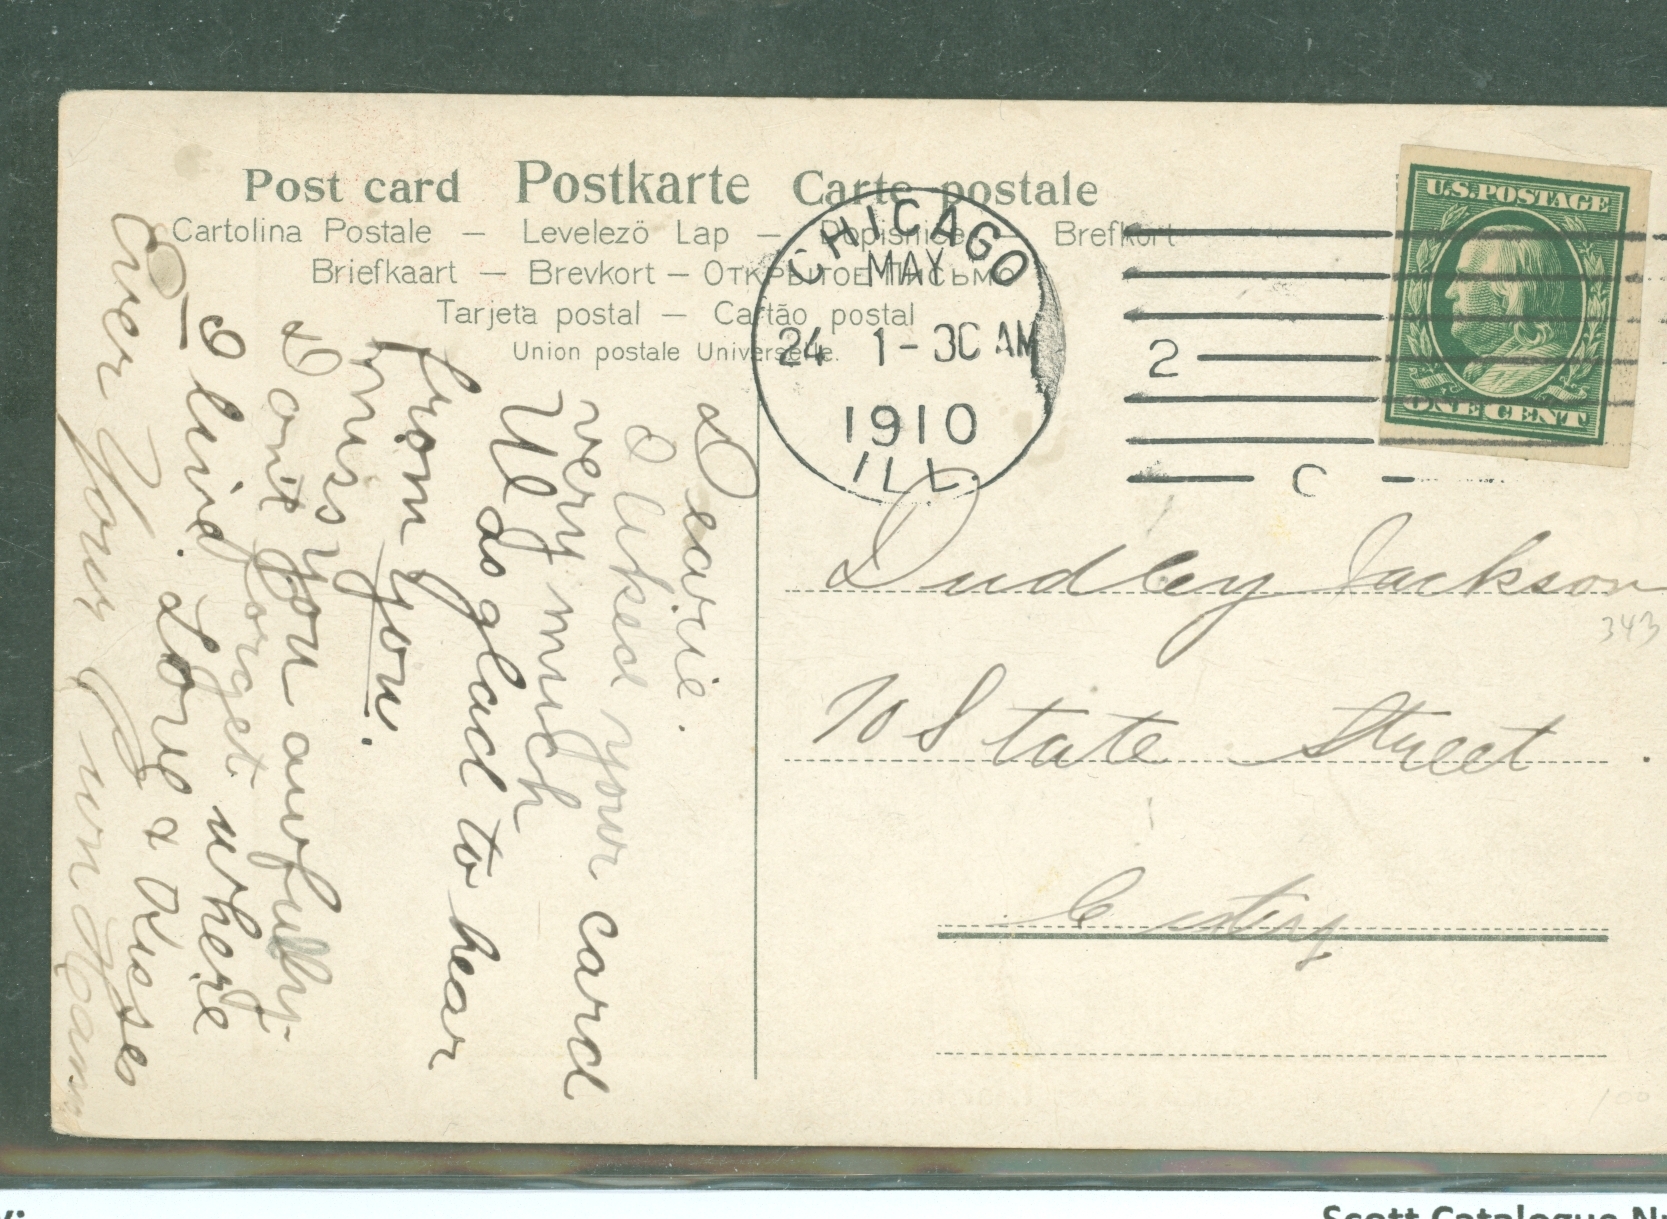 Post card Postkarte Carte postale
Cartolina Postale — Levelező Lap — Dopisnice — Brefkort
Briefkaart — Brevkort — Открытое письмо
Tarjeta postal — Cartão postal
Union postale Universelle.
CHICAGO
MAY
24 1-30 AM
1910
ILL.
2
C
U.S. POSTAGE
ONE CENT
Dudley Jackson
343
70 State Street.
City
100
Dearie.
I liked your card
very much
Was glad to hear
from you.
I miss you awfully.
Dont forget where
I live. Love & Kisses
Ever Your Own
Scott Catalogue Nu